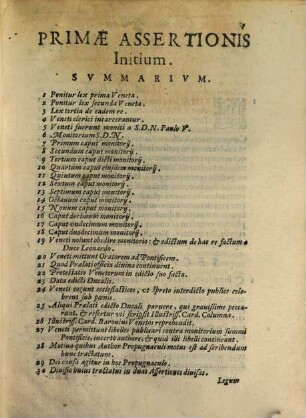 PRIMÆ ASSERTIONIS
Initium.
SVMMARIVM.
1 Ponitur lex prima Veneta.
2 Ponitur lex secunda Veneta.
3 Lex tertia de eadem re
4 Veneti clerici incarcerantur.
5 Veneti fuerunt moniti a S.D.N. Paulo V.
6 Monitorium S.D.N.
7 Primum caput monitorij.
8 Secundum caput monitorij.
9 Tertium caput dicti monitorij.
10 Quartum caput eiusdem monitorij.
11 Quintum caput monitorij.
12 Sextum caput monitorij.
13 Septimum caput monitorij.
14 Octauum caput monitorij.
15 Nonum caput monitorij.
16 Caput decimum monitorij.
17 Caput undecimum monitorij.
18 Caput duodecimum monitorij.
19 Veneti nolunt obedire monitorio: & edictum de hac re factum a
Duce Leonardo.
20 Veneti mittunt Oratorem ad Pontificem.
21 Quod Prælati officia diuina continuent.
22 Protestatio Venetorum in edicto suo facta.
23 Data edicti Ducalis.
24 Veneti cogunt ecclesiasticos, ut spreto interdicto publice celebrarent
sub pœnis.
25 Aliqui Prælati edicto Ducali paruere, qui grauissime peccarunt,
& refertur vti scripsit Illustriss. Card. Columna.
26 Illustriss. Card. Baronius Venetos reprehendit.
27 Veneti permittunt libellos publicari contra monitorium summi
Pontificis, incerto authore, & quid illi libelli contineant.
28 Motiua quibus Author Propugnaculi motus est ad scribendum
hunc tractatum.
29 Dei causa agitur in hoc Propugnaculo.
30 Diuisio huius tractatus in duas Assertiones diuisas.
Legum